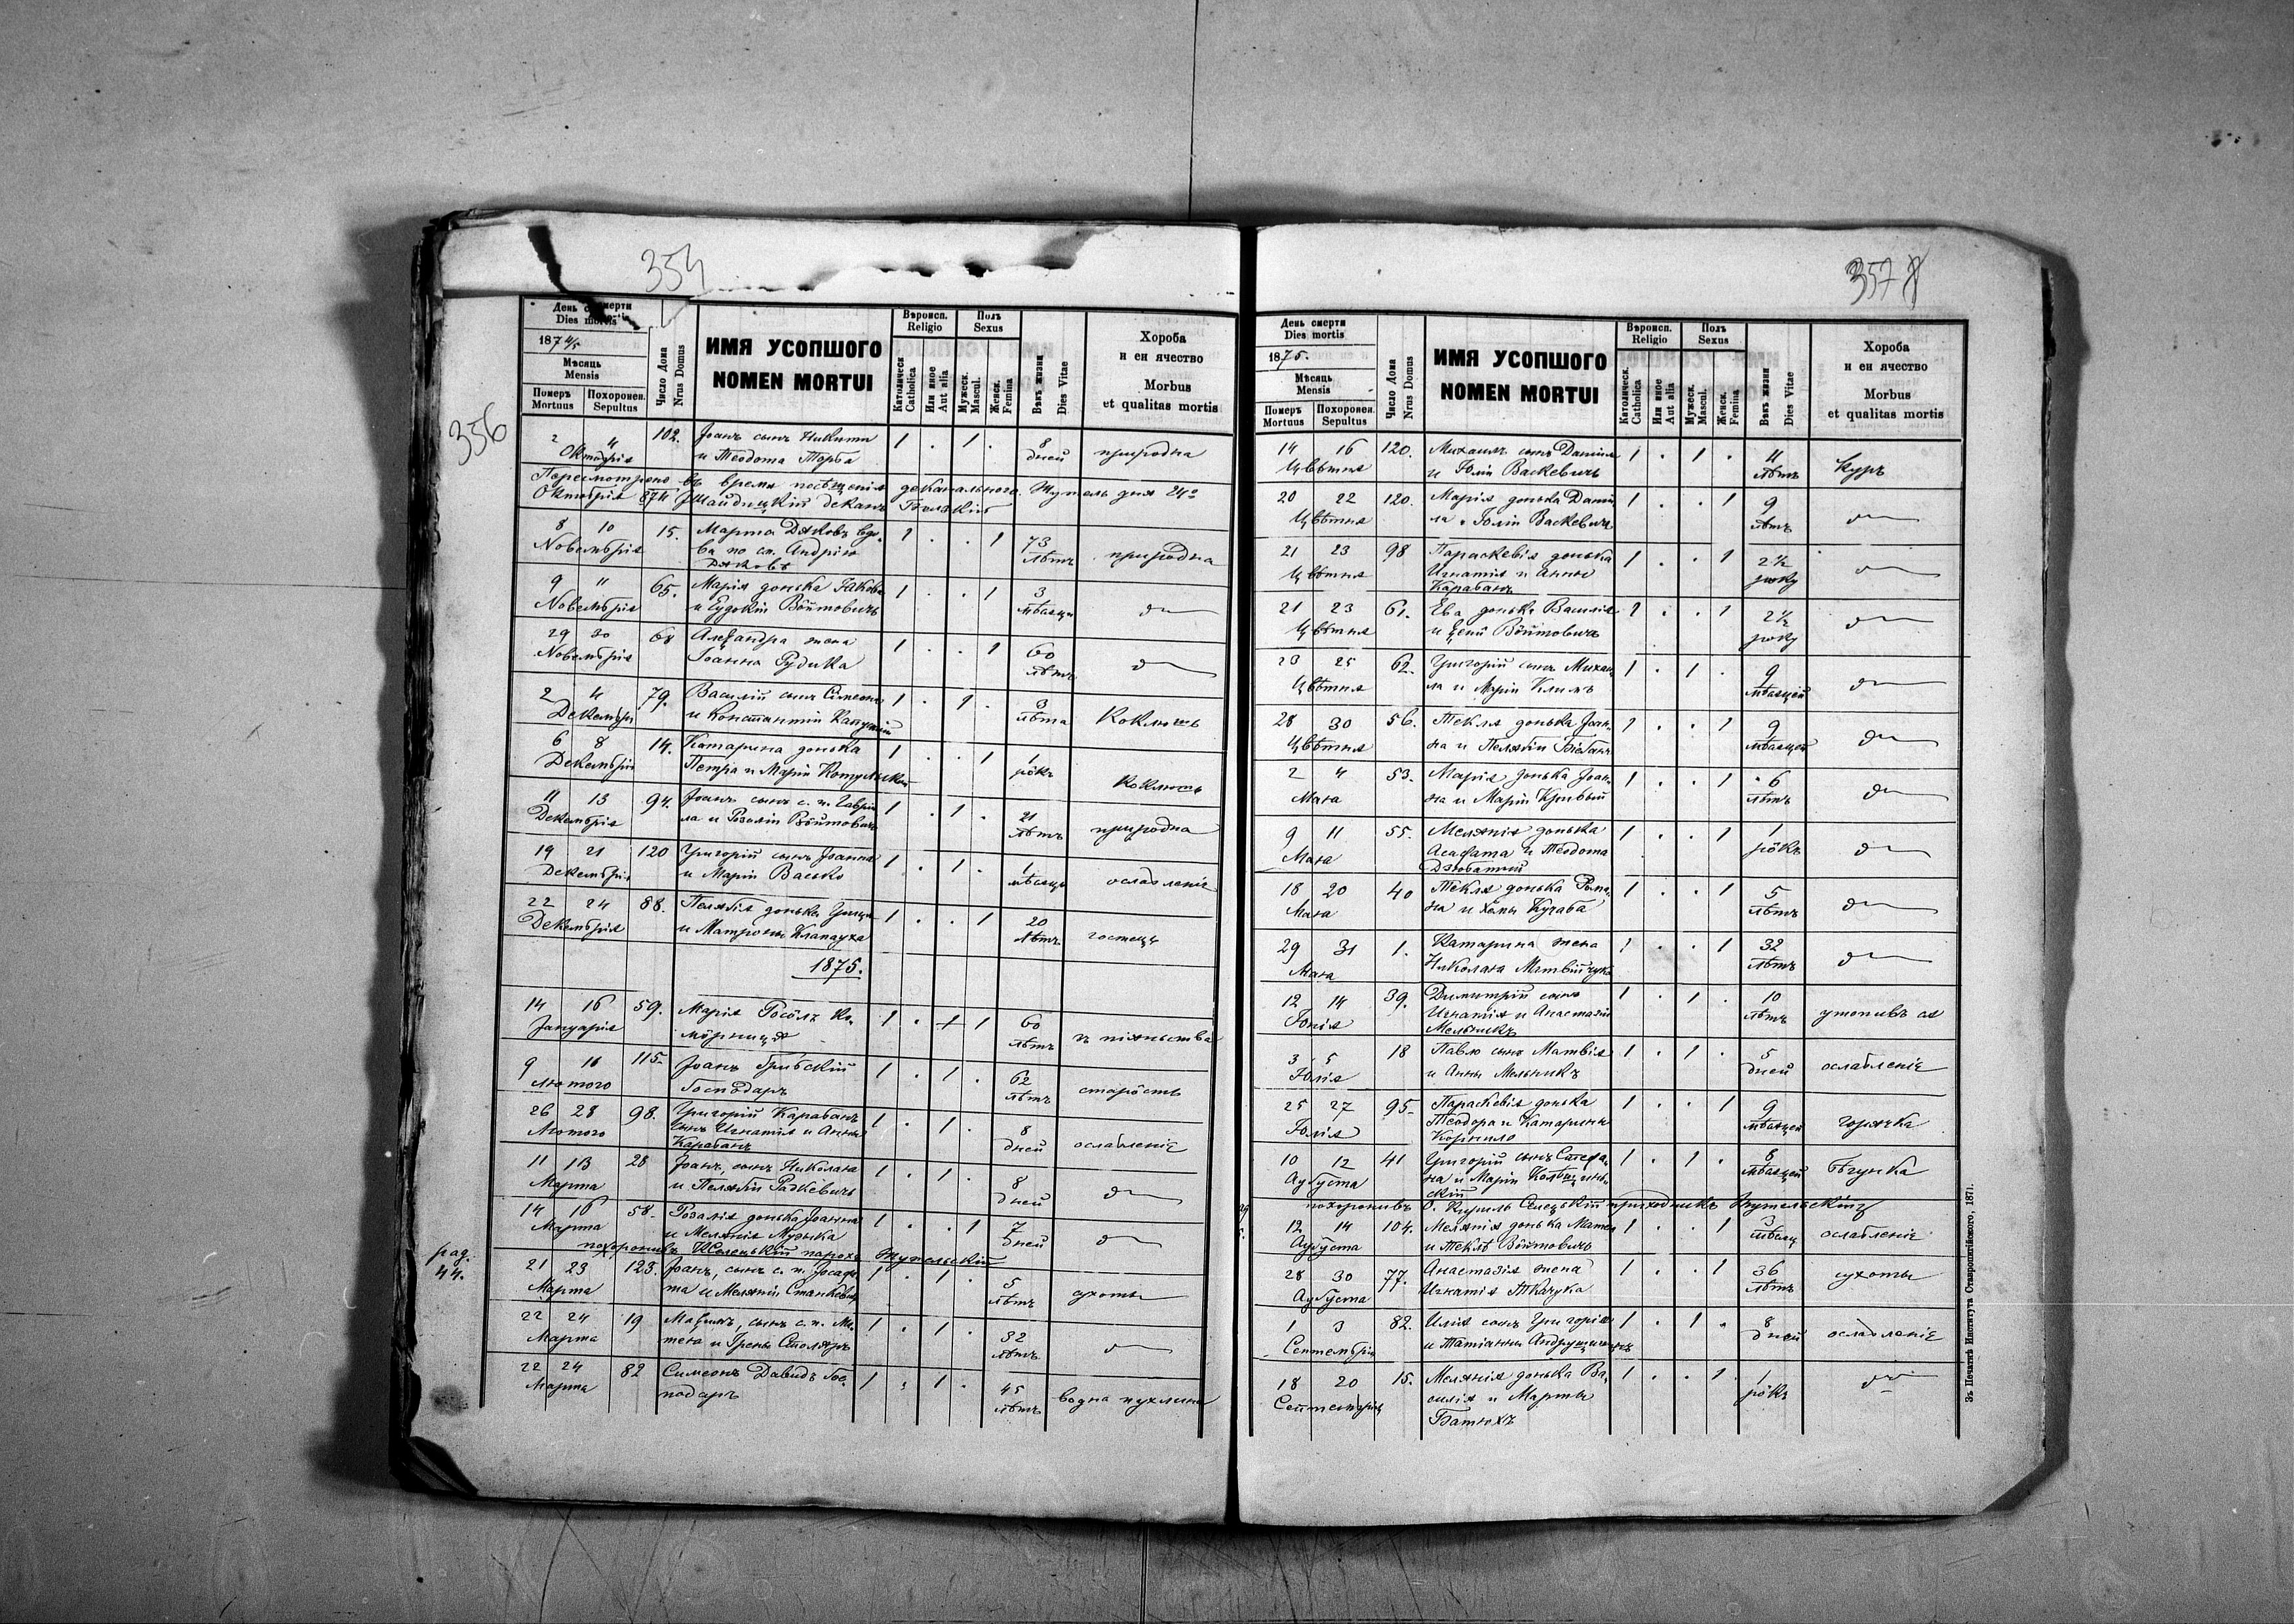 354
356
День смерти
Dies mortis
1874/5
Мѣсяць
Mensis
Померъ
Mortuus
Похоронен.
Sepultus
Число Дома
Nrus Domus
ИМЯ УСОПШОГО
NOMEN MORTUI
Вѣроисп.
Religio
Католическ.
Catholica
Или иное
Aut alia
Полъ
Sexus
Мужеск.
Mascul.
Женск.
Femina
Вѣкъ жизни
Dies Vitae
Хороба
и еи ячество
Morbus
et qualitas mortis
2 4 102. Іоанъ сынъ Никиты 1 . 1 . 8
Октобрія и Теодота Торба дней природна
Пересмотрено въ время посѣщенія деканального. Жужель дня 24го
Октобрія 874 деканъ Бѣлзкій
8 10 15. Марта Дяковъ вдо- 1 . . 1 73
Новембрія ва по см. Андрію лѣтъ природна
Дяковѣ
9 11 65. Марія донька Іакова 1 . . 1 3
Новембрія и Евдокіи Войтовичъ мѣсяци
29 30 68 Александра жена 1 . . 1 60
Новембрія Іоанна Рудика лѣтъ
2 4 79. Василій сынъ Симеона 1 . 1 . 3
Декембрія и Константіи лѣта коклюшъ
6 8 14. Катарина донька 1 . . 1 1
Декембрія Петра и Маріи рôкъ коклюшъ
11 13 94. Іоанъ сынъ с. п. Гаврії- 1 . 1 . 21
Декембрія ла и Розаліи Войтовичъ лѣтъ природна
19 21 120 Григорій сынъ Іоанна 1 . 1 . 1
Декембрія и Маріи Васько мѣсяць ослабленіє
22 24 88. Пелагія донька 1 . . 1 20
Декембрія и Матроны Клапауха лѣтъ гостець
1875.
14 16 59. Марія Ко- 1 . 1 1 60
Януарія мôрниця лѣтъ піяньства
9 11 115. Іоанъ Грибскій 1 . 1 . 62
Лютого Господаръ лѣтъ старôсть
26 28 98. Григорій Карабанъ 1 . 1 . 8
Лютого сынъ Игнатія и Анны дней ослабленіє
Карабанъ
11 13 28 Іоанъ, сынъ Николая 1 . 1 . 8
Марта и Пелагіи Радкевичъ дней
14 16 58. Розалія донька Іоанна 1 . . 1 7
Марта и Меланія Музыка дней
похоронивъ парохъ Жужельскій
рад.
44.
21 23 123. Іоанъ, сынъ с. п. Іосафа- 1 . 1 . 5
Марта та и Меланіи Станкевичъ лѣтъ сухоты
22 24 19 Мафтей, сынъ с. п. Ма- 1 . 1 . 32
Марта тея и Ірены Столяръ лѣтъ
22 24 82 Симеонъ Давидъ Гос- 1 . 1 . 45
Марта подаръ лѣтъ водна пухлина
357
День смерти
Dies mortis
1875.
Мѣсяць
Mensis
Померъ
Mortuus
Похоронен.
Sepultus
Число Дома
Nrus Domus
ИМЯ УСОПШОГО
NOMEN MORTUI
Вѣроисп.
Religio
Католическ.
Catholica
Или иное
Aut alia
Полъ
Sexus
Мужеск.
Mascul.
Женск.
Femina
Вѣкъ жизни
Dies Vitae
Хороба
и еи ячество
Morbus
et qualitas mortis
14 16 120. Михаилъ сынъ Даніила 1 . 1 . 4
Цвѣтня и Юліи Васкевичъ лѣтъ куръ
20 22 120. Марія донька Даніи- 1 . . 1 9
Цвѣтня ла и Юліи Васкевичъ лѣтъ
21 23 98 Параскевія донька 1 . . 1 2½
Цвѣтня Игнатія и Анны року
Карабанъ
21 23 61. Ева донька Василія 1 . . 1 2½
Цвѣтня и Войтовичъ року
23 25 62. Григорій сынъ Михаи- 1 . 1 . 9
Цвѣтня ла и Маріи Климъ мѣсяцей
28 30 56. Текля донька Іоан- 1 . . 1 9
Цвѣтня на и Пелагіи мѣсяцей
2 4 53. Марія донька Іоан- 1 . . 1 6
Мая на и Маріи Кривый лѣтъ
9 11 55. Меланія донька 1 . . 1 1
Мая Асафата и Теодота рôкъ
18 20 40 Текля донька Рома- 1 . . 1 5
Мая на и Кучаба лѣтъ
29 31 1. Катарина жена 1 . . 1 32
Мая Николая Матвійчука лѣтъ
12 14 39. Димитрій сынъ 1 . 1 . 10
Юнія Игнатія и Анастазіи лѣтъ утопивъ ся
Мельникъ
3 5 18 Павло сынъ Матвія 1 . 1 . 5
Юлія и Анны Мельникъ дней ослабленіє
25 27 95. Параскевія донька 1 . . 1 9
Юлія Теодора и Катарины мѣсяцей горячка
Корнило
10 12 41 Григорій сынъ Стефа- 1 . 1 . 8
Августа на и Маріи мѣсяцей бѣгунка
похоронивъ О. Кирилъ Сенецькій приходникъ Жужельскій
12 14 104. Меланія донька Матея 1 . . 1 3
Августа и Теклѣ Войтовичъ мѣсяц ослабленіє
28 30 77. Анастазія жена 1 . . 1 36
Августа Игнатія Ткачука лѣтъ сухоты
1 3 82. Илія сынъ Григорія 1 . 1 . 8
Септембрія и Татіанны дней ослабленіє
18 20 15. Меланія донька Ва- 1 . . 1 1
Септембрія силія и Марты рôкъ
Батюхъ
Зъ Печатнѣ Института Ставропигійского, 1871.